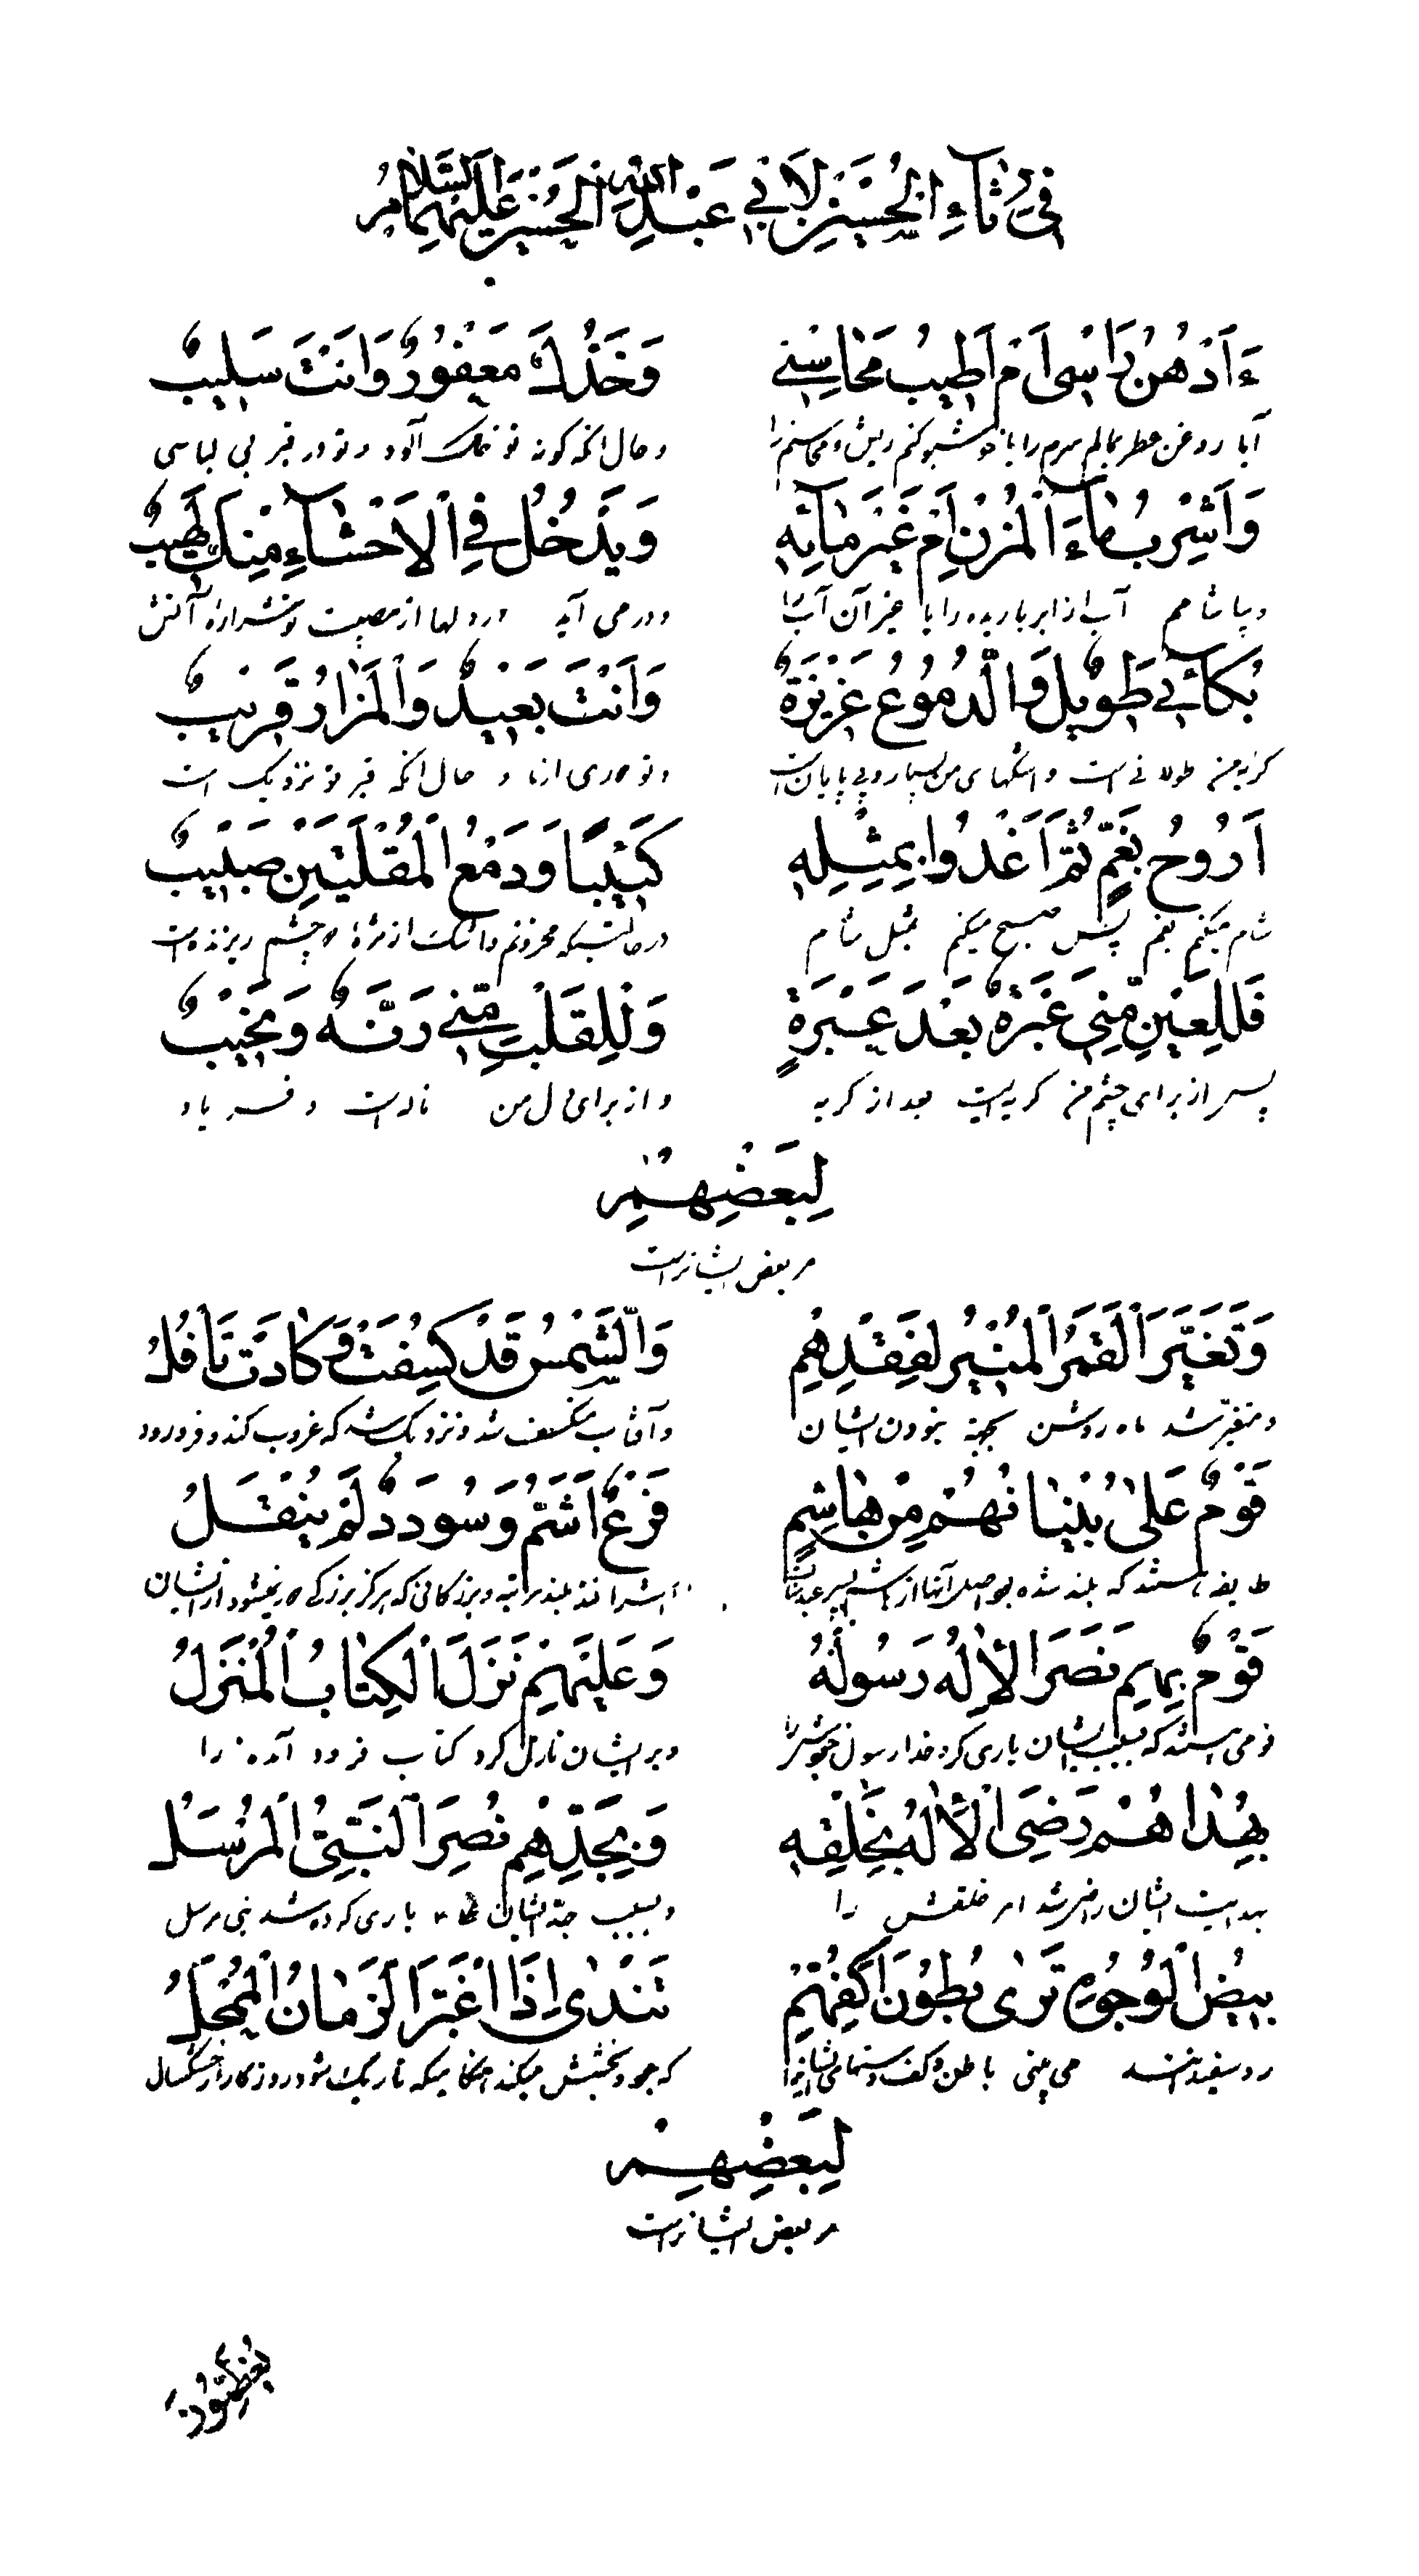 فِي رِثَاءِ الْحُسَيْنِ لِأَبِي عَبْدِ اللّٰهِ الْحُسَيْنِ عَلَيْهِمَا السَّلَامُ
ءَاَدْهُنُ رَاْسِی اَمْ اَطِیْبُ مَحَاسِنِی وَخَدُّكَ مَعْفُورٌ وَاَنْتَ سَلِیبٌ
آیا روغن عطر بمالم سرم را یا خوشبو کنم ریش و محاسنم را و حال آنکه گونه تو خاک آلود و تو در قبر بی لباسی
وَاَشْرَبُ مَاءَ الْمُزْنِ اَمْ غَیْرَ مَائِهِ وَیَدْخُلُ فِی الْاَحْشَاءِ مِنْكَ لَهِیبٌ
و بیاشامم آب از ابر باریده را یا غیر آن آب را و در می آید در دلها از مصیبت تو شراره آتش
بُكَائِی طَوِیلٌ وَالدُّمُوعُ غَزِیزَةٌ وَاَنْتَ بَعِیدٌ وَالْمَزَارُ قَرِیبٌ
گریه من طولانی است و اشکهای من بسیار و بی پایان است و تو دوری از ما و حال آنکه قبر تو نزدیک است
اَرُوحُ بِغَمٍّ ثُمَّ اَغْدُوا بِمِثْلِهِ كَئِیبًا وَدَمْعُ الْمُقْلَتَیْنِ صَبِیبٌ
شام میکنم بغم پس صبح میکنم بمثل شام در حالتیکه محزونم و اشک از مژه چشم ریزنده است
فَلِلْعَیْنِ مِنِّی عَبْرَةٌ بَعْدَ عَبْرَةٍ وَلِلْقَلْبِ مِنِّی رَنَّةٌ وَنَحِیبٌ
پس از برای چشم من گریه ایست بعد از گریه و از برای دل من ناله است و فریاد
لِبَعْضِهِمْ
مر بعض ایشانراست
وَتَغَیَّرَ الْقَمَرُ الْمُنِیرُ لِفَقْدِهِمْ وَالشَّمْسُ قَدْ كُسِفَتْ وَكَادَتْ تَاْفُلُ
و متغیر شد ماه روشن بجهة نبودن ایشان و آفتاب منکسف شد و نزدیک شد که غروب کند و فرو رود
قَوْمٌ عَلٰی بُنْیَانُهُمْ مِنْ هَاشِمٍ فَرْعٌ اَشَمُّ وَسُودَدٌ لَمْ یُنْقَلُ
طایفه هستند که بلند شده اصل آنها از هاشم
قَوْمٌ بِهِمْ نَصَرَ الْاِلٰهُ رَسُولَهُ وَعَلَیْهِمْ نَزَلَ الْكِتَابُ الْمُنْزَلُ
قومی هستند که بسبب ایشان یاری کرد خدا رسول خودش را و بر ایشان نازل کرد کتاب فرود آمده را
بِهُدٰاهُمْ رَضِیَ الْاِلٰهُ بِخَلْقِهِ وَبِجَدِّهِمْ نُصِرَ النَّبِیُّ الْمُرْسَلُ
بهدایت ایشان راضی شد خلقش را و بسبب جد ایشان یاری کرده شد نبی مرسل
بِیضُ الْوُجُوهِ تَرٰی بُطُونَ اَكُفِّهِمْ تَنْدٰی اِذَا اغْبَرَّ الزَّمَانُ الْمُمْحِلُ
رو سفیدانند می بینی باطن و کف دستهای ایشانرا که جود و بخشش میکند هنگامیکه تاریک شود روزگار از خشکسال
لِبَعْضِهِمْ
مر بعض ایشانراست